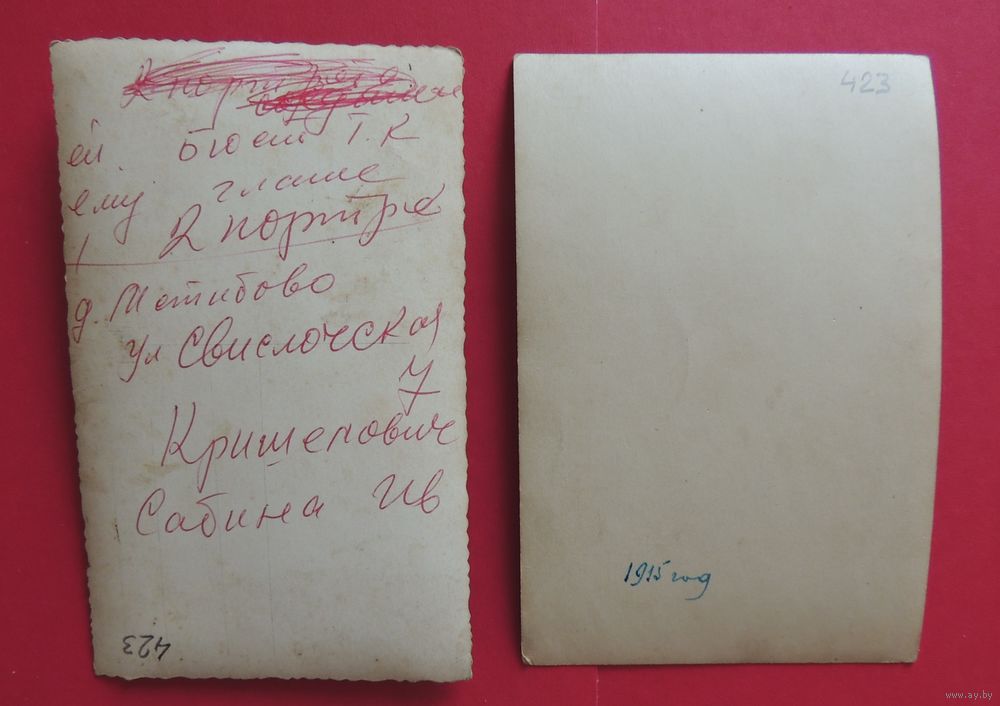 2 портрета
ей. бюст Т. К
ему глаше
1 2 портре
д. Метибово
ул Свислочская
7
Кришепович
Сабина Ив
423
423
1915 год
www.ay.by